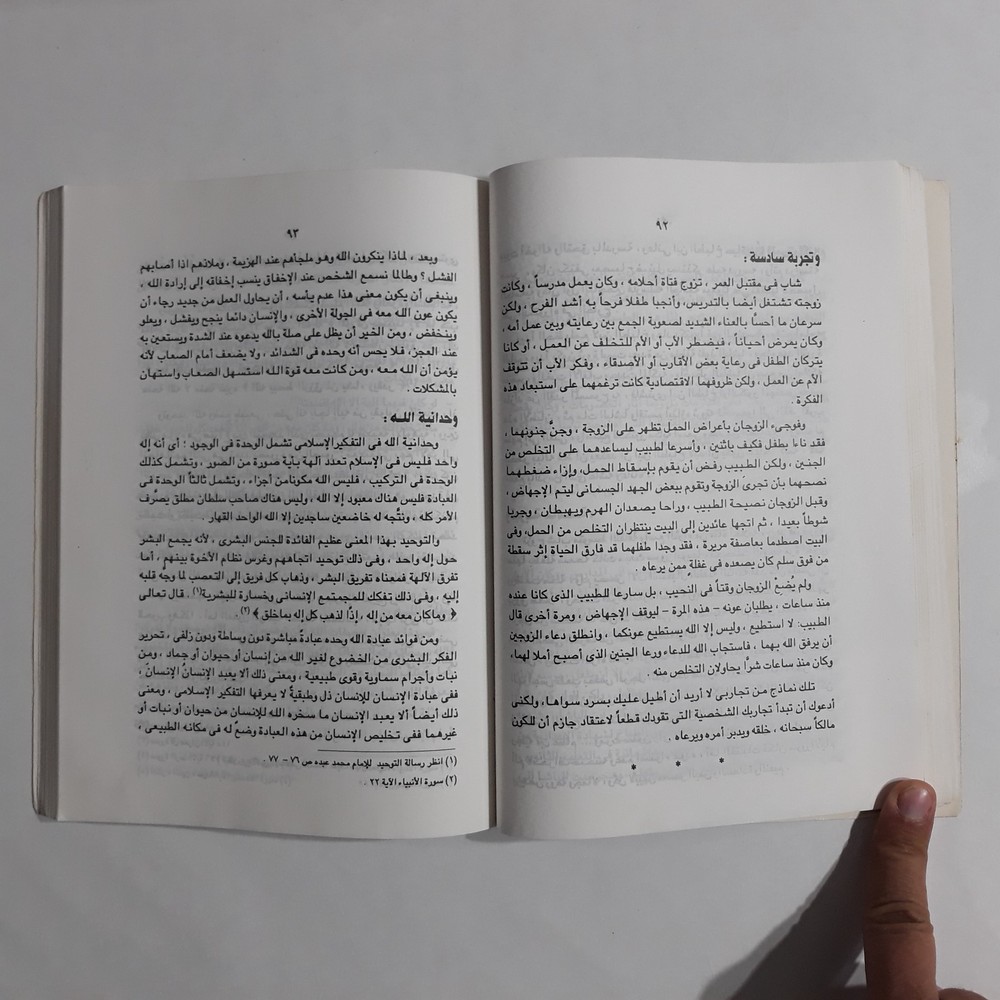 ٩٢
وتجربة سادسة :
شاب فى مقتبل العمر ، تزوج فتاة أحلامه ، وكان يعمل مدرساً ، وكانت
زوجته تشتغل أيضا بالتدريس، وأنجبا طفلا فرحاً به أشد الفرح ، ولكن
سرعان ما أحسًّا بالعناء الشديد لصعوبة الجمع بين رعايته وبين عمل أمه ،
وكان يمرض أحياناً ، فيضطر الأب أو الأم للتخلف عن العمل ، أو كانا
يتركان الطفل فى رعاية بعض الأقارب أو الأصدقاء ، وفكر الأب أن تتوقف
الأم عن العمل ، ولكن ظروفهما الاقتصادية كانت ترغمهما على استبعاد هذه
الفكرة .
وفوجىء الزوجان بأعراض الحمل تظهر على الزوجة ، وجنَّ جنونهما ،
فقد ناءا بطفل فكيف باثنين ، وأسرعا لطبيب ليساعدهما على التخلص من
الجنين ، ولكن الطبيب رفض أن يقوم بإسقاط الحمل، وإزاء ضغطهما
نصحهما بأن تجرىَ الزوجة وتقوم ببعض الجهد الجسمانى ليتم الإجهاض ،
وقبل الزوجان نصيحة الطبيب ، وراحا يصعدان الهرم ويهبطان ، وجريا
شوطاً بعيدا ، ثم اتجها عائدين إلى البيت ينتظران التخلص من الحمل، وفى
البيت اصطدما بعاصفة مريرة ، فقد وجدا طفلهما قد فارق الحياة إثر سقطة
من فوق سلم كان يصعده فى غفلةٍ ممن يرعاه .
ولم يُضِعْ الزوجان وقتاً فى النحيب ، بل سارعا للطبيب الذى كانا عنده
منذ ساعات ، يطلبان عونه – هذه المرة – ليوقف الإجهاض ، ومرة أخرى قال
الطبيب: لا استطيع ، وليس إلا الله يستطيع عونكما ، وانطلق دعاء الزوجين
أن يرفق الله بهما ، فاستجاب الله للدعاء ورعا الجنين الذى أصبح أملا لهما،
وكان منذ ساعات شرًّا يحاولان التخلص منه .
تلك نماذج من تجاربى لا أريد أن أطيل عليك بسرد سواها، ولكنى
أدعوك أن تبدأ تجاربك الشخصية التى تقودك قطعاً لاعتقاد جازم أن للكون
مالكاً سبحانه ، خلقه ويدبر أمره ويرعاه .
* * *
٩٣
وبعد ، لماذا ينكرون الله وهو ملجأهم عند الهزيمة ، وملاذهم اذا أصابهم
الفشل ؟ وطالما نسمع الشخص عند الإخفاق ينسب إخفاقه إلى إرادة الله ،
وينبغى أن يكون معنى هذا عدم يأسه ، أن يحاول العمل من جديد رجاء أن
يكون عون الله معه فى الجولة الأخرى ، والإنسان دائما ينجح ويفشل ، ويعلو
وينخفض ، ومن الخير أن يظل على صلة بالله يدعوه عند الشدة ويستعين به
عند العجز، فلا يحس أنه وحده فى الشدائد ، ولا يضعف أمام الصعاب لأنه
يؤمن أن الله معه ، ومن كانت معه قوة الله استسهل الصعاب واستهان
بالمشكلات .
وحدانية اللـه :
وحدانية الله فى التفكير الإسلامى تشمل الوحدة فى الوجود ؛ أى أنه إله
واحد فليس فى الإسلام تعدد آلهة بأية صورة من الصور ، وتشمل كذلك
الوحدة فى التركيب ، فليس الله مكونا من أجزاء ، وتشمل ثالثاً الوحدة فى
العبادة فليس هناك معبود إلا الله ، وليس هناك صاحب سلطان مطلق يصرِّف
الأمر كله ، ونتَّجه له خاضعين ساجدين إلا الله الواحد القهار .
والتوحيد بهذا المعنى عظيم الفائدة للجنس البشرى ، لأنه يجمع البشر
حول إله واحد ، وفى ذلك توحيد اتجاهاهم وغرس نظام الأخوة بينهم ، أما
تفرق الآلهة فمعناه تفريق البشر ، وذهاب كل فريق إلى التعصب لما وجَّه قلبه
إليه ، وفى ذلك تفكك للمجتمع الإنسانى وخسارة للبشرية(١) . قال تعالى
﴿ وماكان معه من إله ، إذًا لذهب كل إله بماخلق ﴾ (٢) .
ومن فوائد عبادة الله وحده عبادةً مباشرة دون وساطة ودون زلفى ، تحرير
الفكر البشرى من الخضوع لغير الله من إنسان أو حيوان أو جماد ، ومن
نبات وأجرام سماوية وقوى طبيعية ، ومعنى ذلك ألا يعبد الإنسانُ الإنسانَ ،
ففى عبادة الإنسان للإنسان ذل وطبقيةٌ لا يعرفها التفكير الإسلامى ، ومعنى
ذلك أيضاً ألا يعبد الإنسان ما سخره الله للإنسان من حيوان أو نبات أو
غيرهما ففى تخليص الإنسان من هذه العبادة وضعٌ له فى مكانه الطبيعى ،
(١) انظر رسالة التوحيد للإمام محمد عبده ص ٧٦ – ٧٧ .
(٢) سورة الأنبياء الآية ٢٢